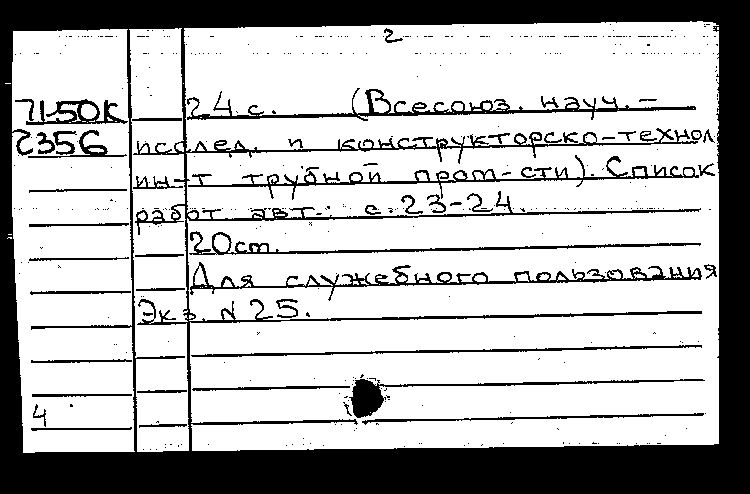 2
71-50К 24 с. (Всесоюз. науч.-
2356 исслед. и конструкторско-технол
ин-т трубной пром-сти). Список
работ авт.: с. 23-24.
20см.
Для служебного пользования
Экз. № 25.
4